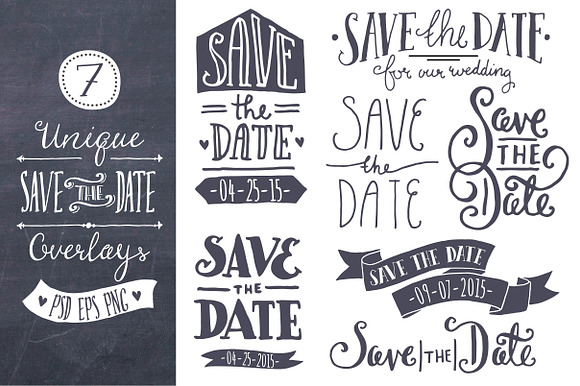 7
Unique
SAVE THE DATE
Overlays
PSD EPS PNG
SAVE
the
DATE
-04-25-15-
SAVE
THE
DATE
-04-25-2015-
·SAVE the DATE·
for our wedding
SAVE
the
DATE
Save
THE
Date
SAVE THE DATE
-09-07-2015-
Save|THE|Date